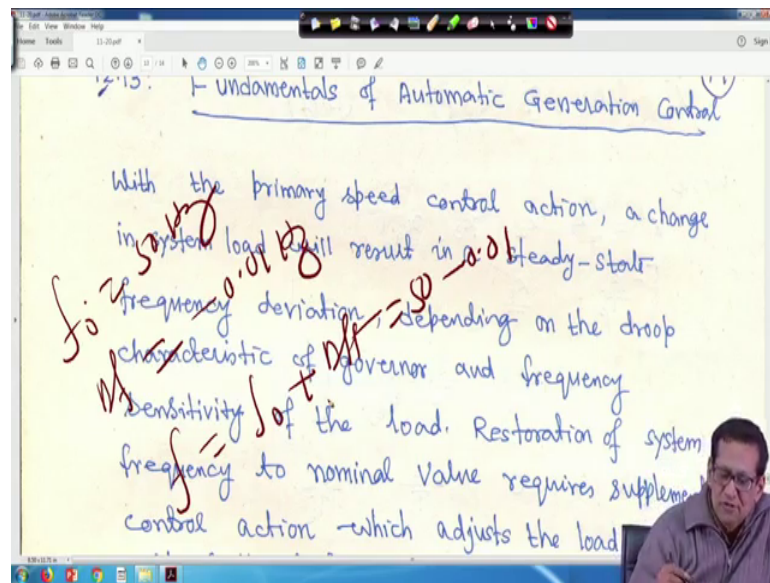 11-20.pdf - Adobe Acrobat Reader DC
File Edit View Window Help
Home Tools 11-20.pdf × Sign
200%
12.13: Fundamentals of Automatic Generation Control
With the primary speed control action, a change
in system load will result in a steady-state
frequency deviation, depending on the droop
characteristic of governor and frequency
sensitivity of the load. Restoration of system
frequency to nominal value requires
control action which adjusts the load
f0 = 50 Hz
Δf = -0.01 Hz
f = f0 + Δf = 50 - 0.01